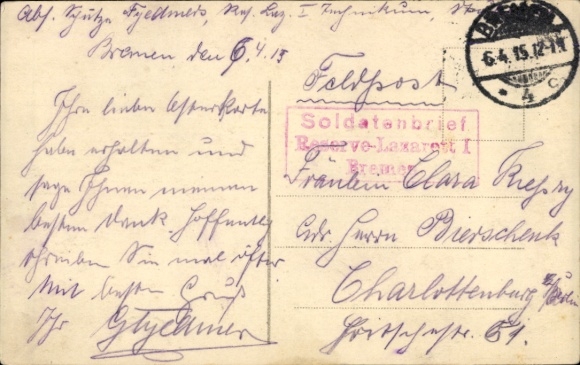 Abs. Schütze Res. Laz. I Technikum,
Bremen den 6.4.15
Ihre liebe Osterkarte
habe erhalten und
sage Ihnen meinen
besten Dank. Hoffentlich
schreiben Sie mal öfter
Mit besten Gruß
Ihr
BREMEN
6.4.15.12-1N
* 4 c
Feldpost
Soldatenbrief
Reserve-Lazarett I
Bremen
Fräulein Clara
adr Herrn Bierschenk
Charlottenburg b/Berlin
str. 61.